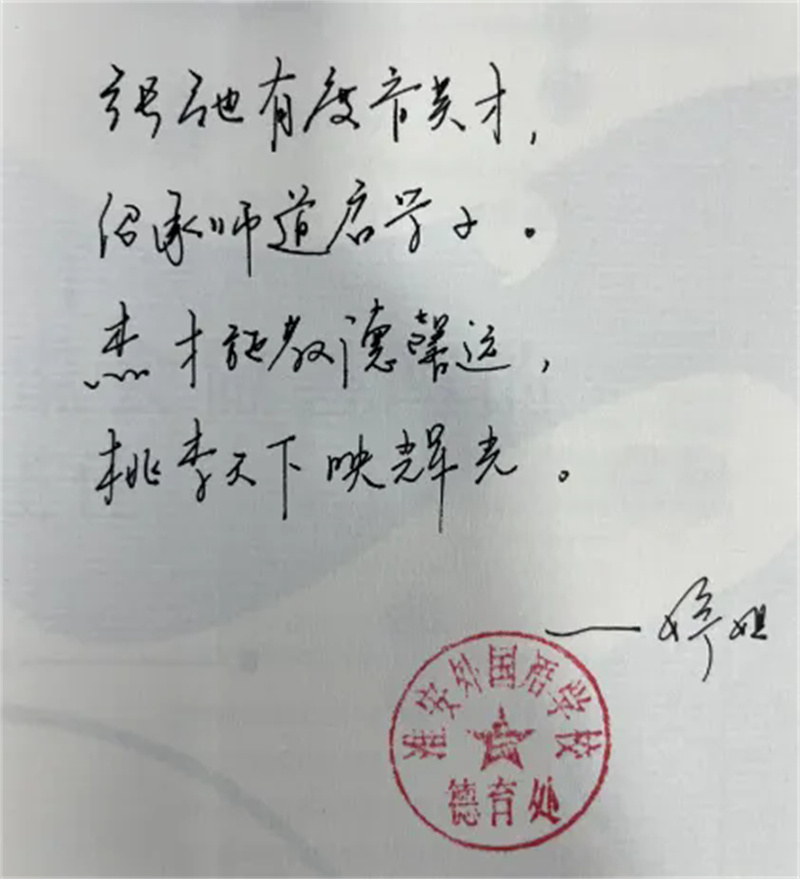 张弛有度育英才，
绍承师道启学子。
杰才施教德馨远，
桃李天下映辉光。
——婷姐
淮安外国语学校
德育处